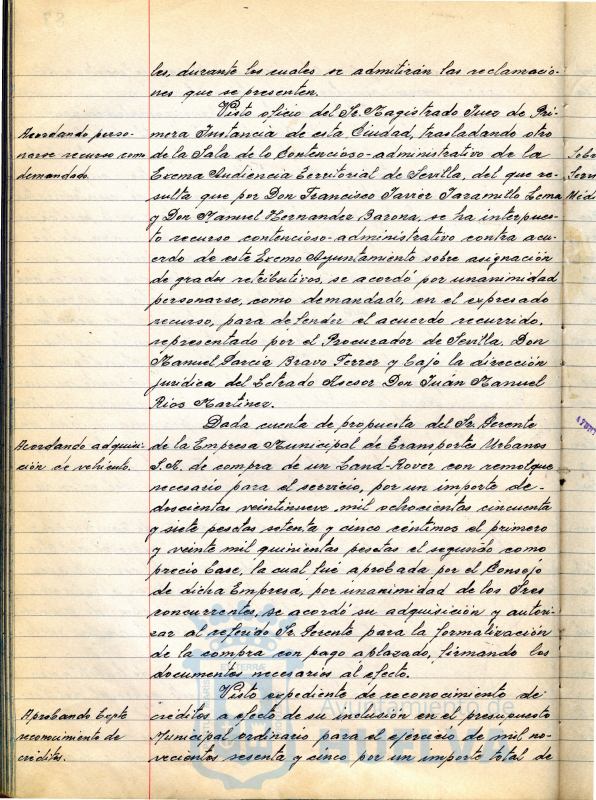 les, durante los cuales se admitirán las reclamacio-
nes que se presenten.
Visto oficio del Sr. Magistrado Juez de Pri-
mera Instancia de esta Ciudad, trasladando otro
de la Sala de lo Contencioso-administrativo de la
Excma Audiencia Territorial de Sevilla, del que re-
sulta que por Don Francisco Javier Jaramillo Lema
y Don Manuel Hernandez Barona, se ha interpues-
to recurso contencioso-administrativo contra acu-
erdo de este Excmo Ayuntamiento sobre asignación
de grados retributivos, se acordó por unanimidad
personarse, como demandado, en el expresado
recurso, para defender el acuerdo recurrido,
representado por el Procurador de Sevilla, Don
Manuel Garcia Bravo Ferrer y bajo la dirección
jurídica del Letrado Asesor Don Juan Manuel
Rios Martinez.
Dada cuenta de propuesta del Sr. Gerente
de la Empresa Municipal de Transportes Urbanos
S.A. de compra de un Land-Rover con remolque
necesario para el servicio, por un importe de-
doscientas veintinueve mil ochocientas cincuenta
y siete pesetas setenta y cinco céntimos el primero
y veinte mil quinientas pesetas el segundo como
precio base, la cual fué aprobada por el Consejo
de dicha Empresa, por unanimidad de los Sres
concurrentes, se acordó su adquisición y autori-
zar al referido Sr. Gerente para la formalización
de la compra con pago aplazado, firmando los
documentos necesarios al efecto.
Visto expediente de reconocimiento de
créditos a efecto de su inclusión en el presupuesto
Municipal ordinario para el ejercicio de mil no-
vecientos sesenta y cinco por un importe total de
Acordando perso-
narse recurso como
demandado.
Acordando adquisi-
ción de vehículo.
Aprobando Expte
reconocimiento de
créditos.
Sobr
Serv
Médi
Ayuntamiento de
HUELVA